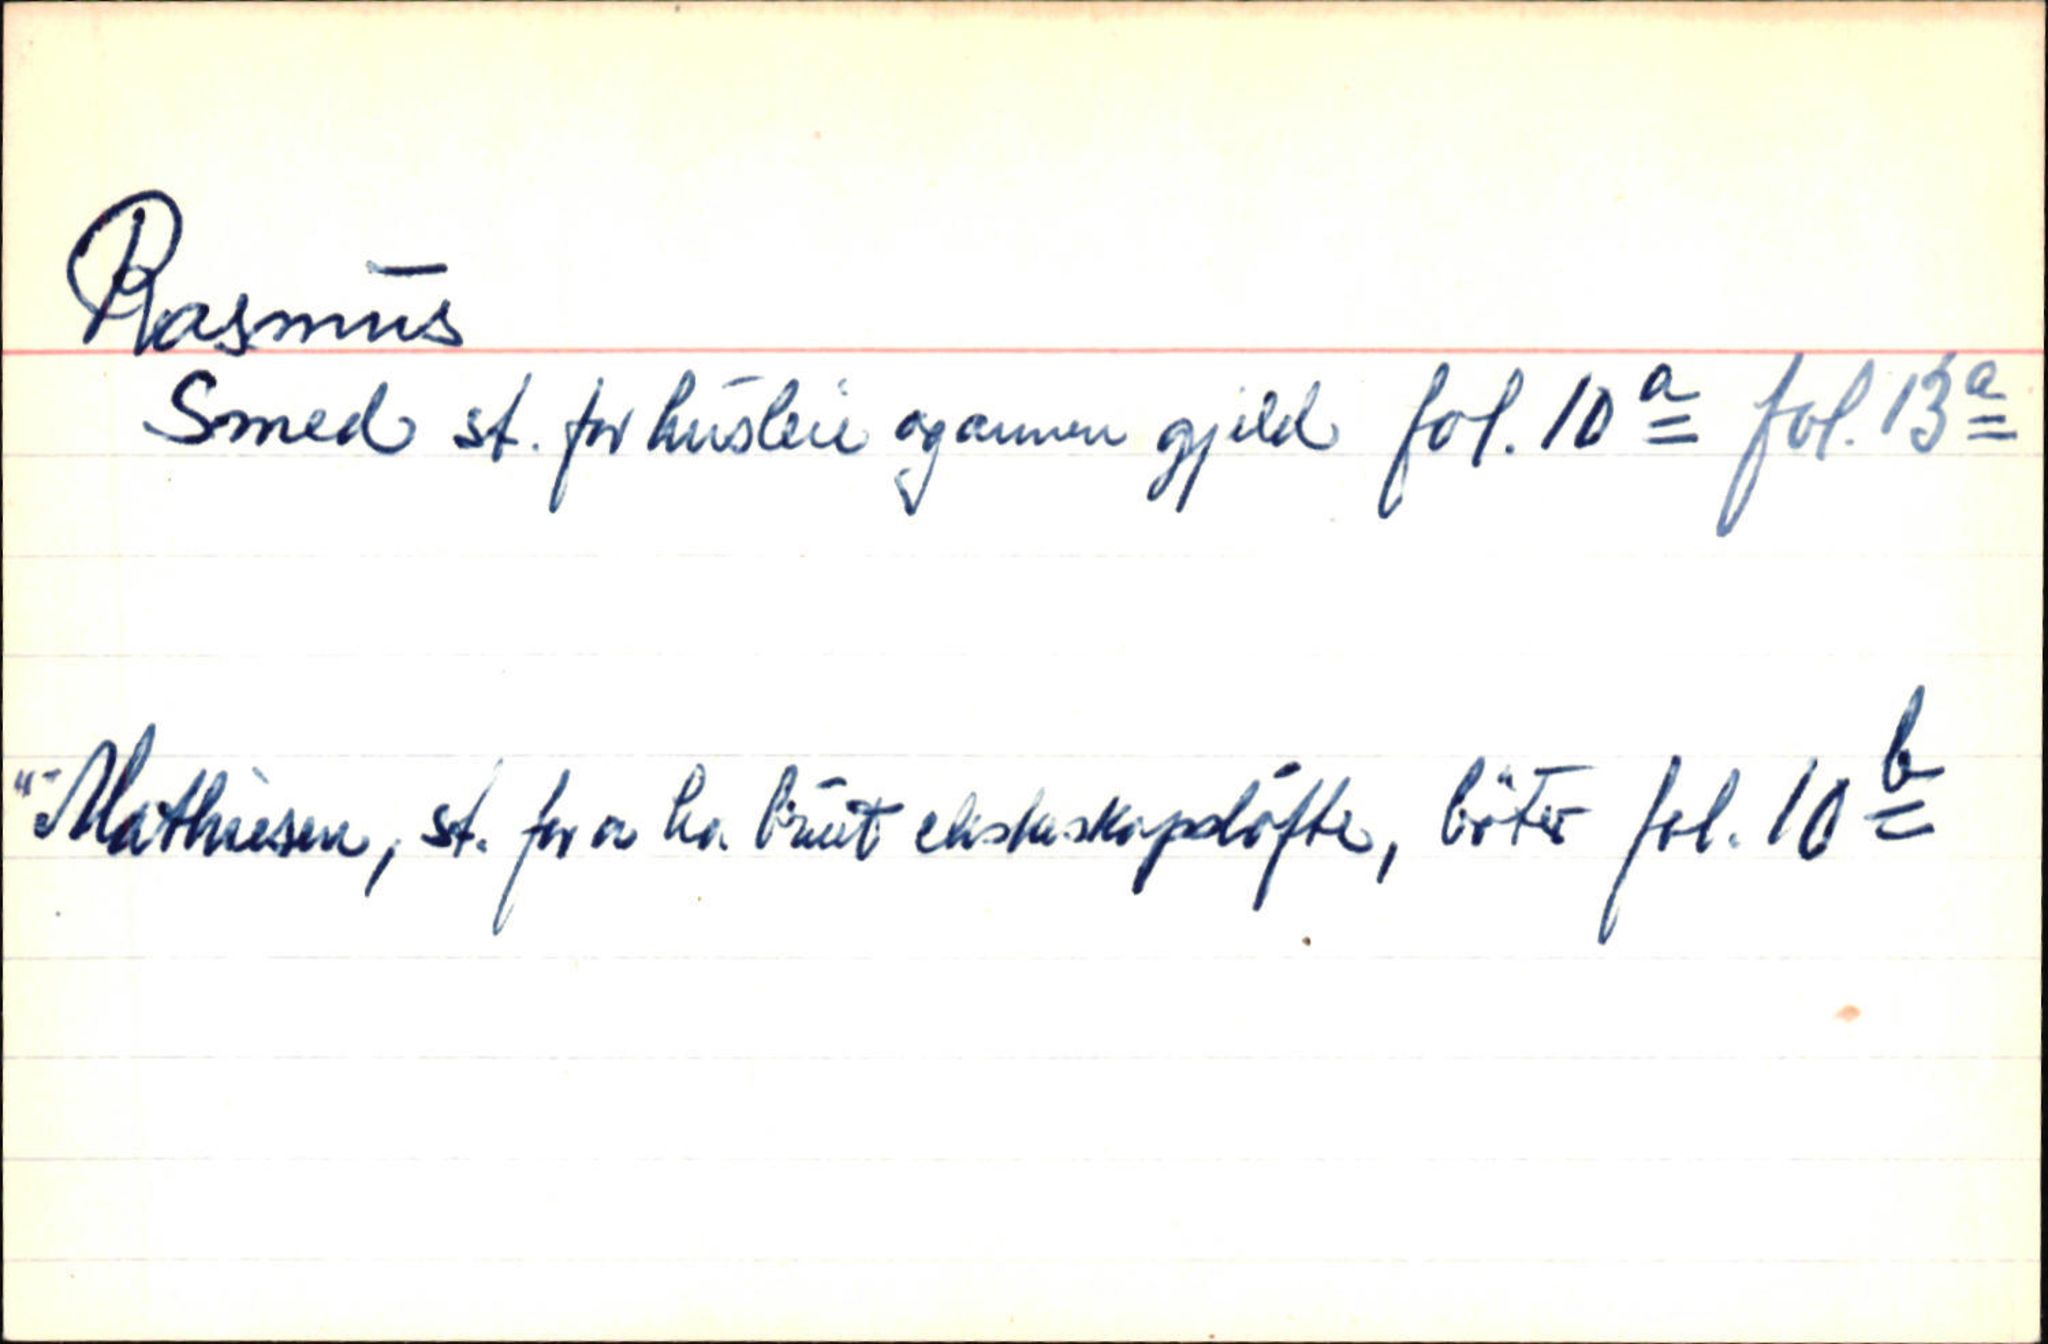 Rasmus
Smed st. for husleie og annen gjeld fol. 10 a fol. 13 a
"Mathiesen, st. for a ha brut ekteskapslöfte, böter fol. 10 b